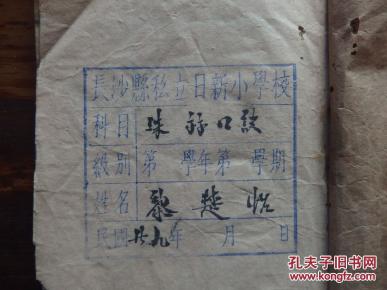 長沙縣私立日新小學校
科目 珠祘口訣
級別 第 學年第 學期
姓名 黎楚
民國廿九年 月 日
孔夫子旧书网